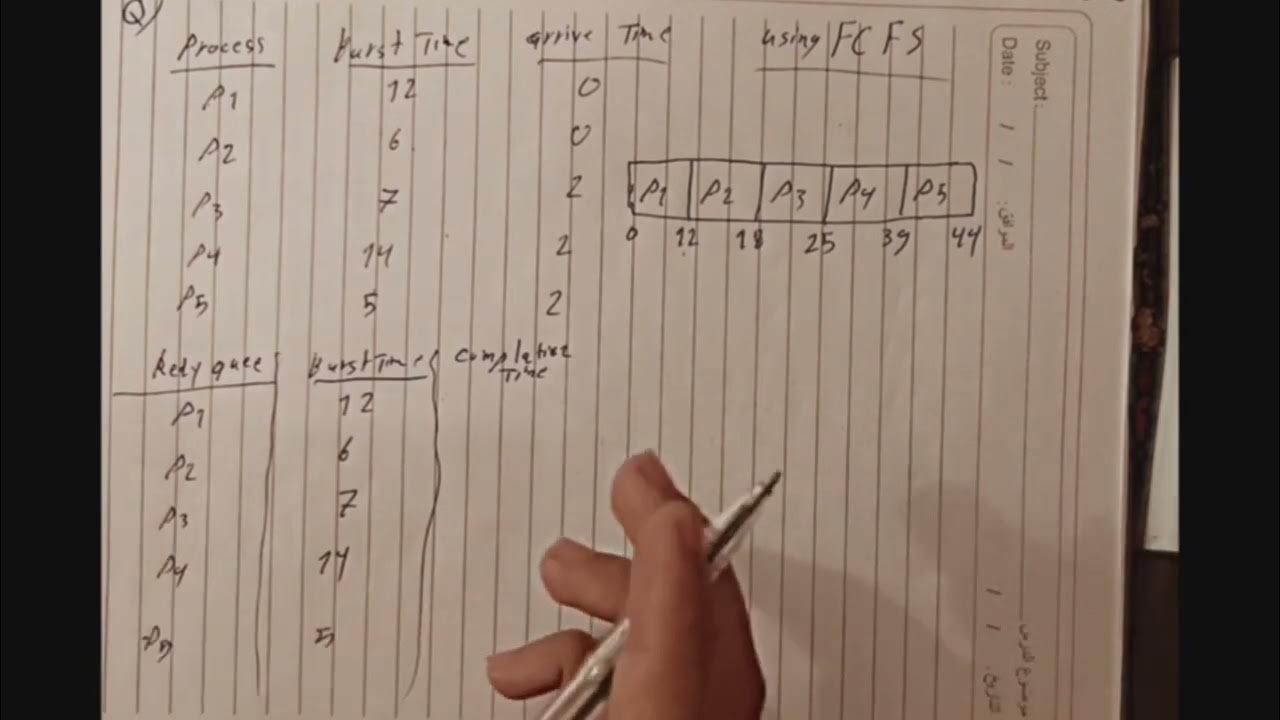 Q)
Process Burst Time arrive Time using FCFS
P1 12 0
P2 6 0
P3 7 2
P4 14 2
P5 5 2
P1 P2 P3 P4 P5
0 12 18 25 39 44
Redy quee Burst Time Complative Time
P1 12
P2 6
P3 7
P4 14
P5 5
Subject:
Date: / /
/ /